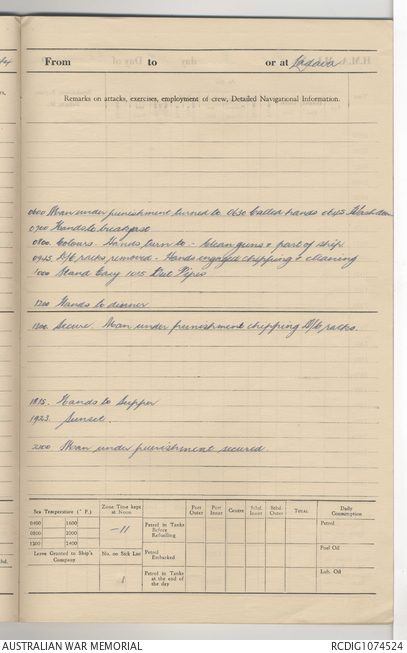 From to or at Ladava
Remarks on attacks, exercises, employment of crew, Detailed Navigational Information.
0600 Man under punishment turned to. 0630 Called hands 0645 Wash down
0700 Hands to breakfast
0800. Colours. Hands turn to - Clean guns & part of ship
0945. D/C racks removed - Hands engaged chipping & cleaning
1000 Stand Easy 1015 Out Pipes
1200 Hands to dinner
1300. Secure Man under punishment chipping D/C racks.
1815. Hands to Supper
1923. Sunset.
2200 Man under punishment secured.
Sea Temperature (° F.) Zone Time kept at Noon Port Outer Port Inner Centre Stbd. Inner Stbd. Outer TOTAL Daily Consumption
0400 1600 Petrol in Tanks Before Refuelling Petrol
0800 2000 -11
1200 2400 Fuel Oil
Leave Granted to Ship's Company No. on Sick List Petrol Embarked
1 Petrol in Tanks at the end of the day Lub. Oil
AUSTRALIAN WAR MEMORIAL RCDIG1074524